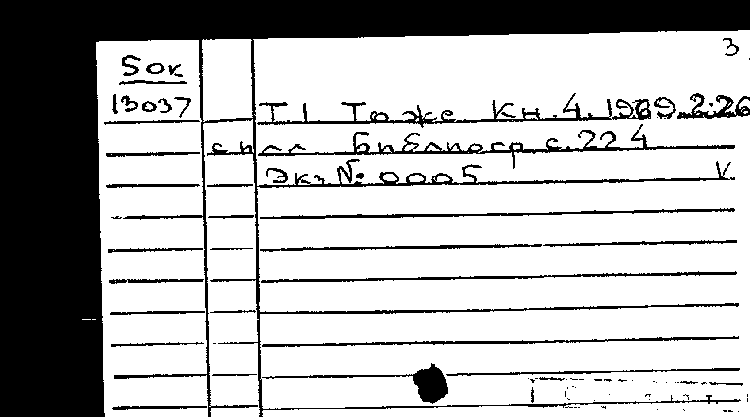 3
50к
13037 Т.1 То же Кн.4. 1969. 226
с илл Библиогр с.224
Экз.№ 0005 V